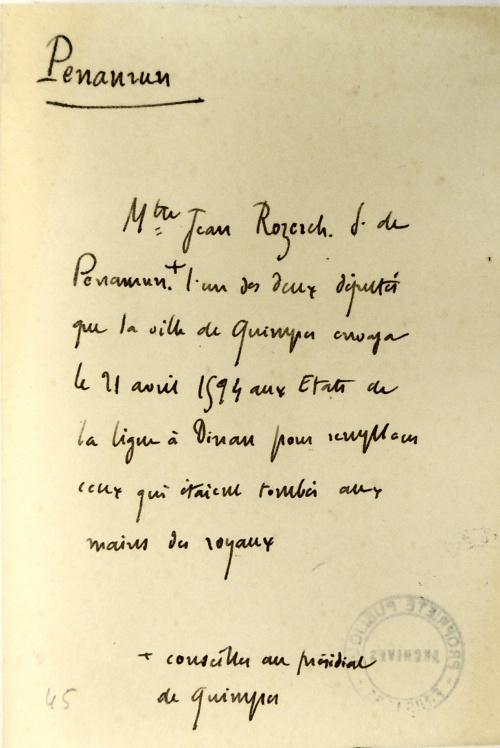 Penanrun
Mtre Jean Rozerch. S. de
Penanrun.+ l'un des deux députés
que la ville de Quimper envoya
le 21 avril 1594 aux Etats de
la ligue à Dinan pour remplacer
ceux qui étaient tombés aux
mains des royaux
+ conseiller au présidial
de Quimper
45
PROPRIETE PUBLIQUE
ARCHIVES